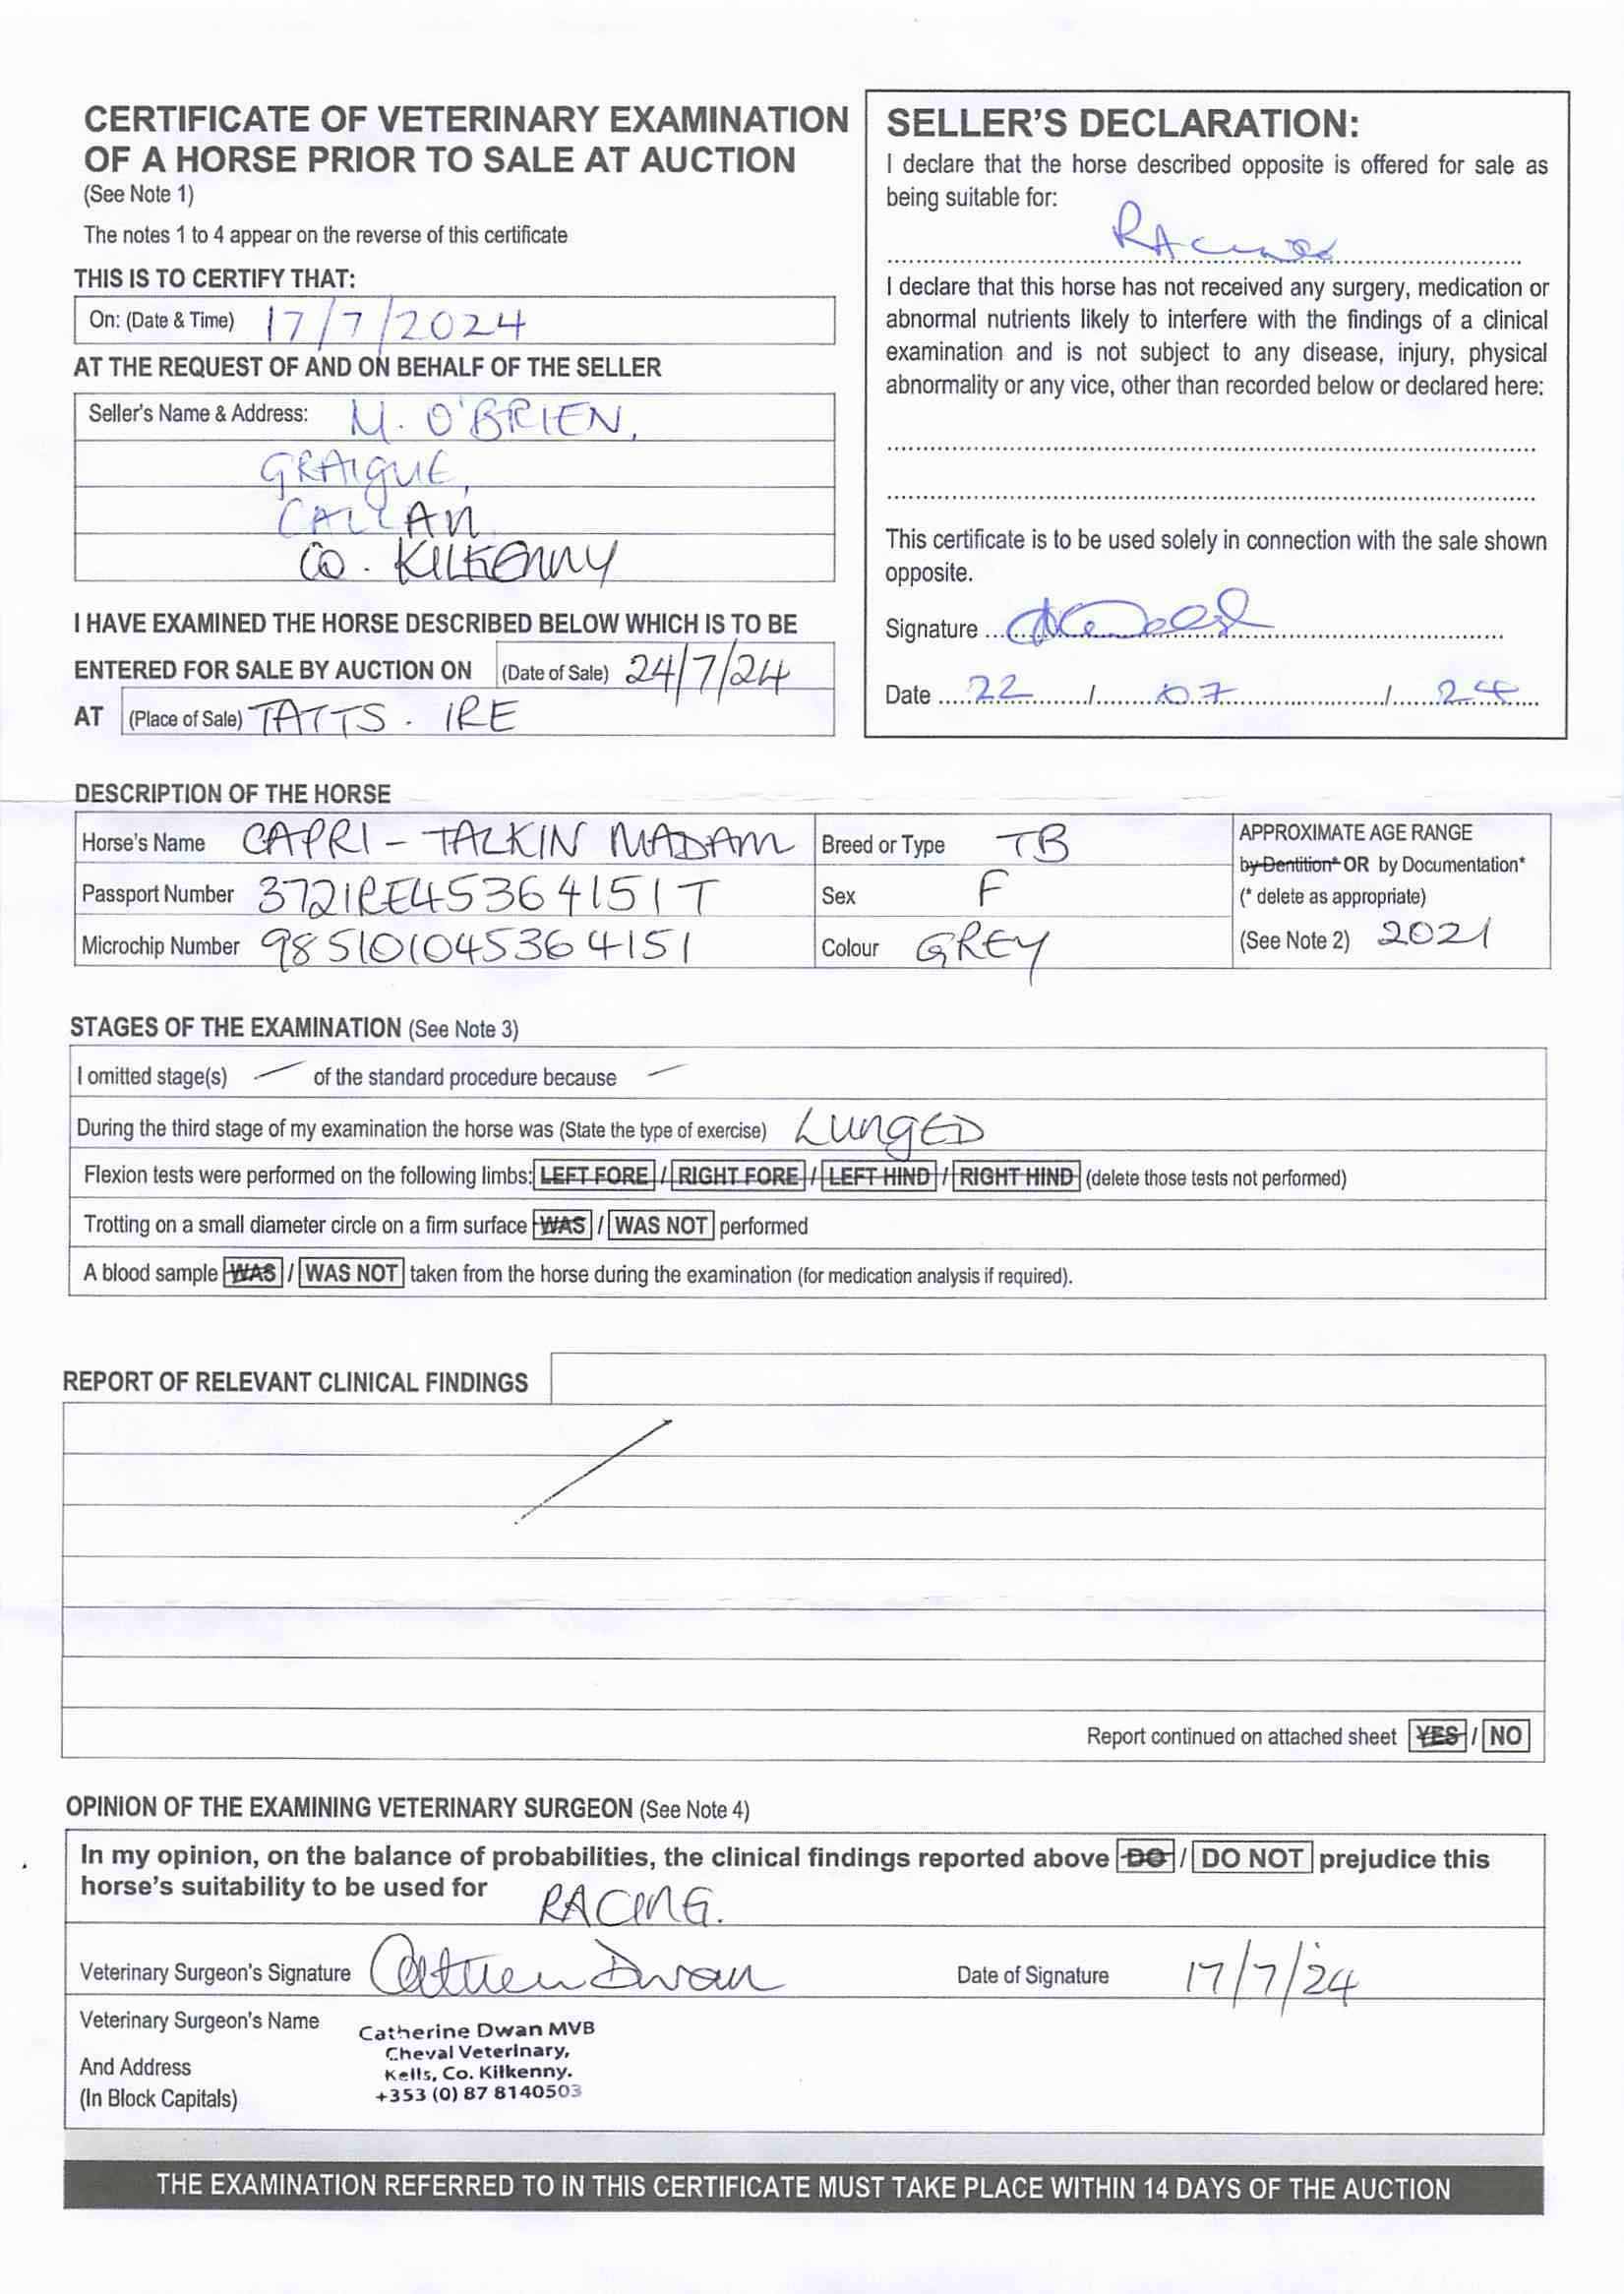 CERTIFICATE OF VETERINARY EXAMINATION
OF A HORSE PRIOR TO SALE AT AUCTION
(See Note 1)
The notes 1 to 4 appear on the reverse of this certificate
THIS IS TO CERTIFY THAT:
On: (Date & Time) 17/7/2024
AT THE REQUEST OF AND ON BEHALF OF THE SELLER
Seller's Name & Address: M. O'BRIEN,
GRAIGUE,
CALLAN
CO. KILKENNY
I HAVE EXAMINED THE HORSE DESCRIBED BELOW WHICH IS TO BE
ENTERED FOR SALE BY AUCTION ON (Date of Sale) 24/7/24
AT (Place of Sale) TATTS. IRE
SELLER'S DECLARATION:
I declare that the horse described opposite is offered for sale as
being suitable for:
RACING
I declare that this horse has not received any surgery, medication or
abnormal nutrients likely to interfere with the findings of a clinical
examination and is not subject to any disease, injury, physical
abnormality or any vice, other than recorded below or declared here:
This certificate is to be used solely in connection with the sale shown
opposite.
Signature
Date 22/07/24
DESCRIPTION OF THE HORSE
Horse's Name CAPRI - TALKIN MADAM Breed or Type TB APPROXIMATE AGE RANGE
by Dentition* OR by Documentation*
Passport Number 372IRE45364151T Sex F (* delete as appropriate)
Microchip Number 985101045364151 Colour GREY (See Note 2) 2021
STAGES OF THE EXAMINATION (See Note 3)
I omitted stage(s) — of the standard procedure because —
During the third stage of my examination the horse was (State the type of exercise) LUNGED
Flexion tests were performed on the following limbs: LEFT FORE / RIGHT FORE / LEFT HIND / RIGHT HIND (delete those tests not performed)
Trotting on a small diameter circle on a firm surface WAS / WAS NOT performed
A blood sample WAS / WAS NOT taken from the horse during the examination (for medication analysis if required).
REPORT OF RELEVANT CLINICAL FINDINGS
Report continued on attached sheet YES / NO
OPINION OF THE EXAMINING VETERINARY SURGEON (See Note 4)
In my opinion, on the balance of probabilities, the clinical findings reported above DO / DO NOT prejudice this
horse's suitability to be used for RACING.
Veterinary Surgeon's Signature Catherine Dwan Date of Signature 17/7/24
Veterinary Surgeon's Name
And Address
(In Block Capitals)
Catherine Dwan MVB
Cheval Veterinary,
Kells, Co. Kilkenny.
+353 (0) 87 8140503
THE EXAMINATION REFERRED TO IN THIS CERTIFICATE MUST TAKE PLACE WITHIN 14 DAYS OF THE AUCTION